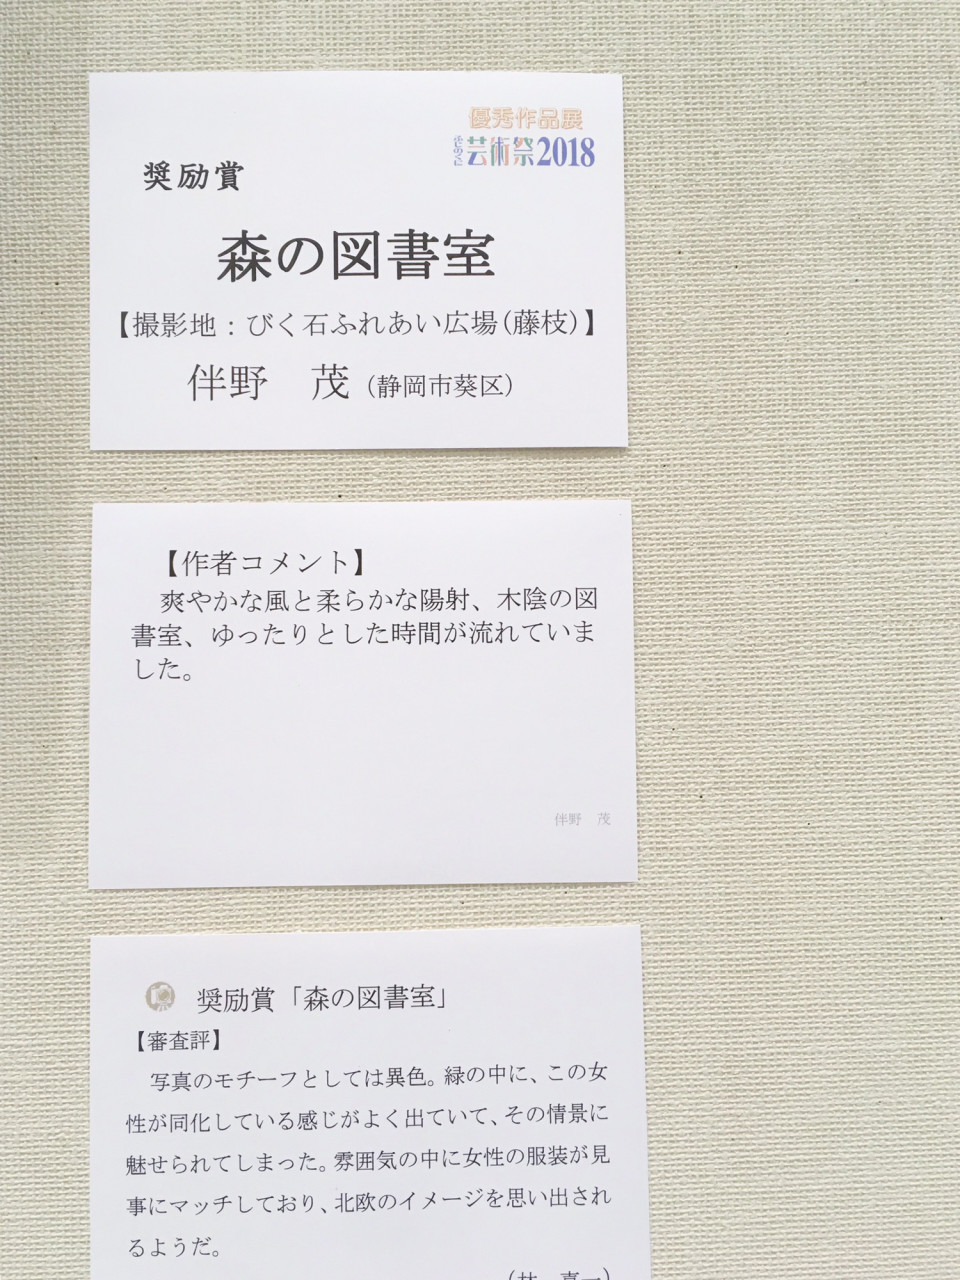 優秀作品展
ふじのくに芸術祭2018
奨励賞
森の図書室
【撮影地：びく石ふれあい広場(藤枝)】
伴野　茂（静岡市葵区）
【作者コメント】
爽やかな風と柔らかな陽射、木陰の図
書室、ゆったりとした時間が流れていま
した。
伴野　茂
奨励賞「森の図書室」
【審査評】
写真のモチーフとしては異色。緑の中に、この女
性が同化している感じがよく出ていて、その情景に
魅せられてしまった。雰囲気の中に女性の服装が見
事にマッチしており、北欧のイメージを思い出され
るようだ。